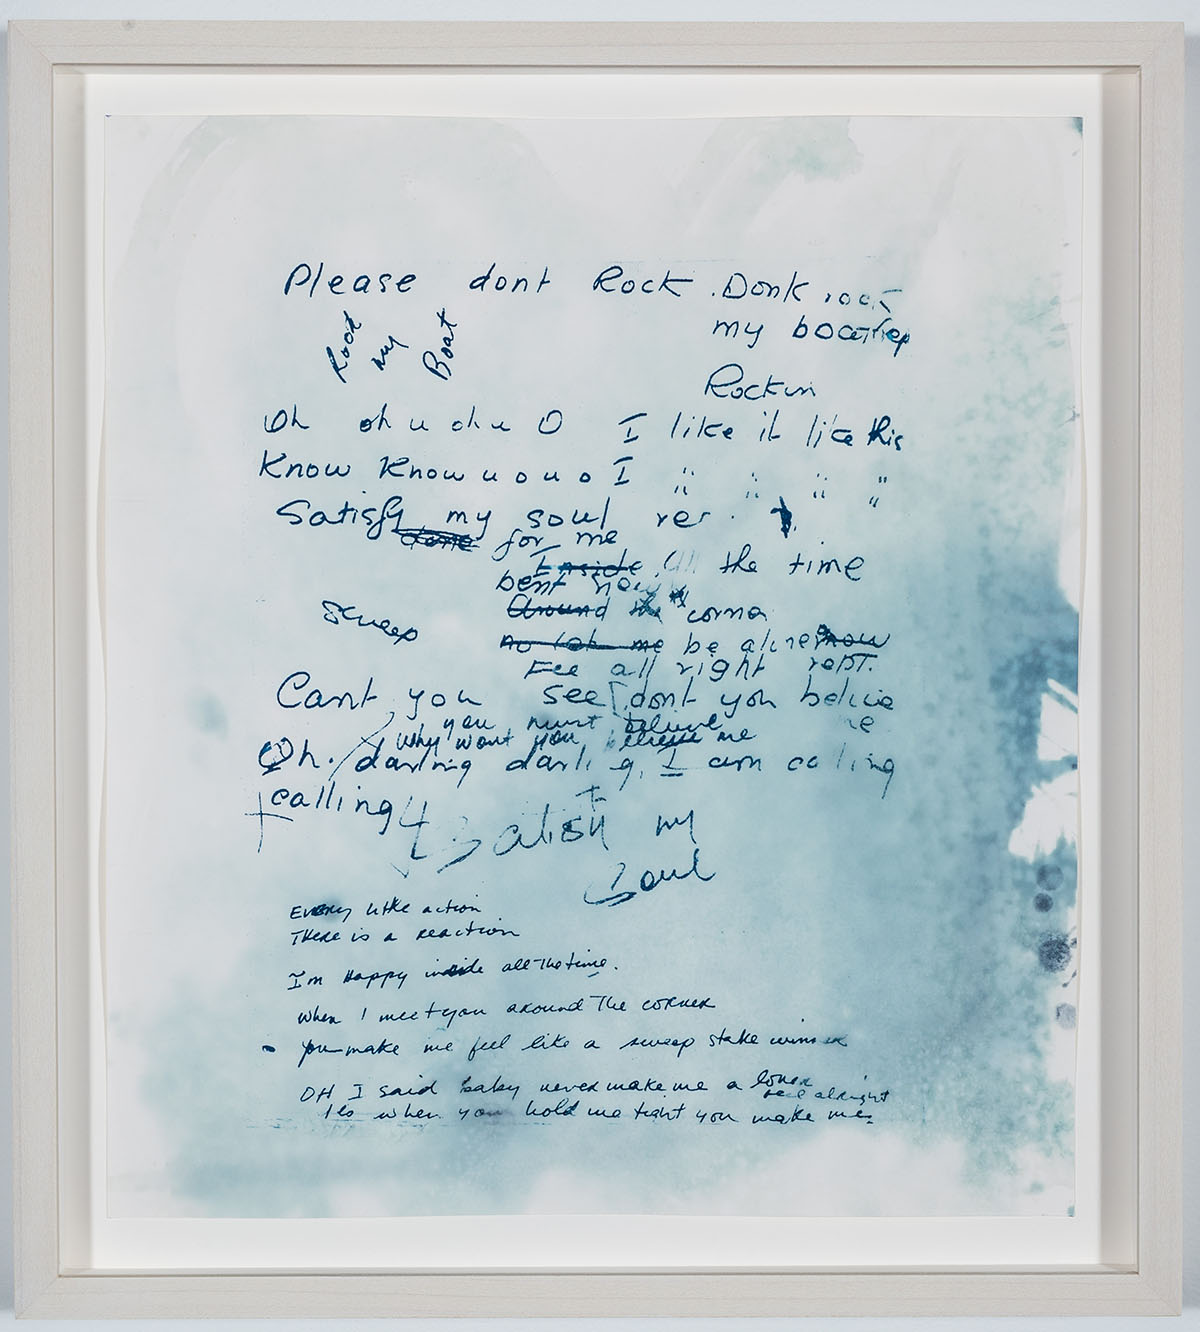 Please dont Rock . Donk rock
my boat
Rock my Boat
Rockin
Oh oh u oh u O I like it like this
Know Know u o u o I " " " "
Satisfy my soul
done for me
Inside All the time
bent
Around the corna
Sweep
no let me be alone now
Fee all right rept.
Cant you see dont you belive
you must believe me
why wont you believe me
Oh. darling darling, I am calling
calling
Satisfy my
Soul
Every little action
There is a reaction
I'm Happy inside all the time.
when I meet you around The corner
you make me feel like a sweep stake winner
OH I said baby never make me a loner
feel alright
Yes when you hold me tight you make me